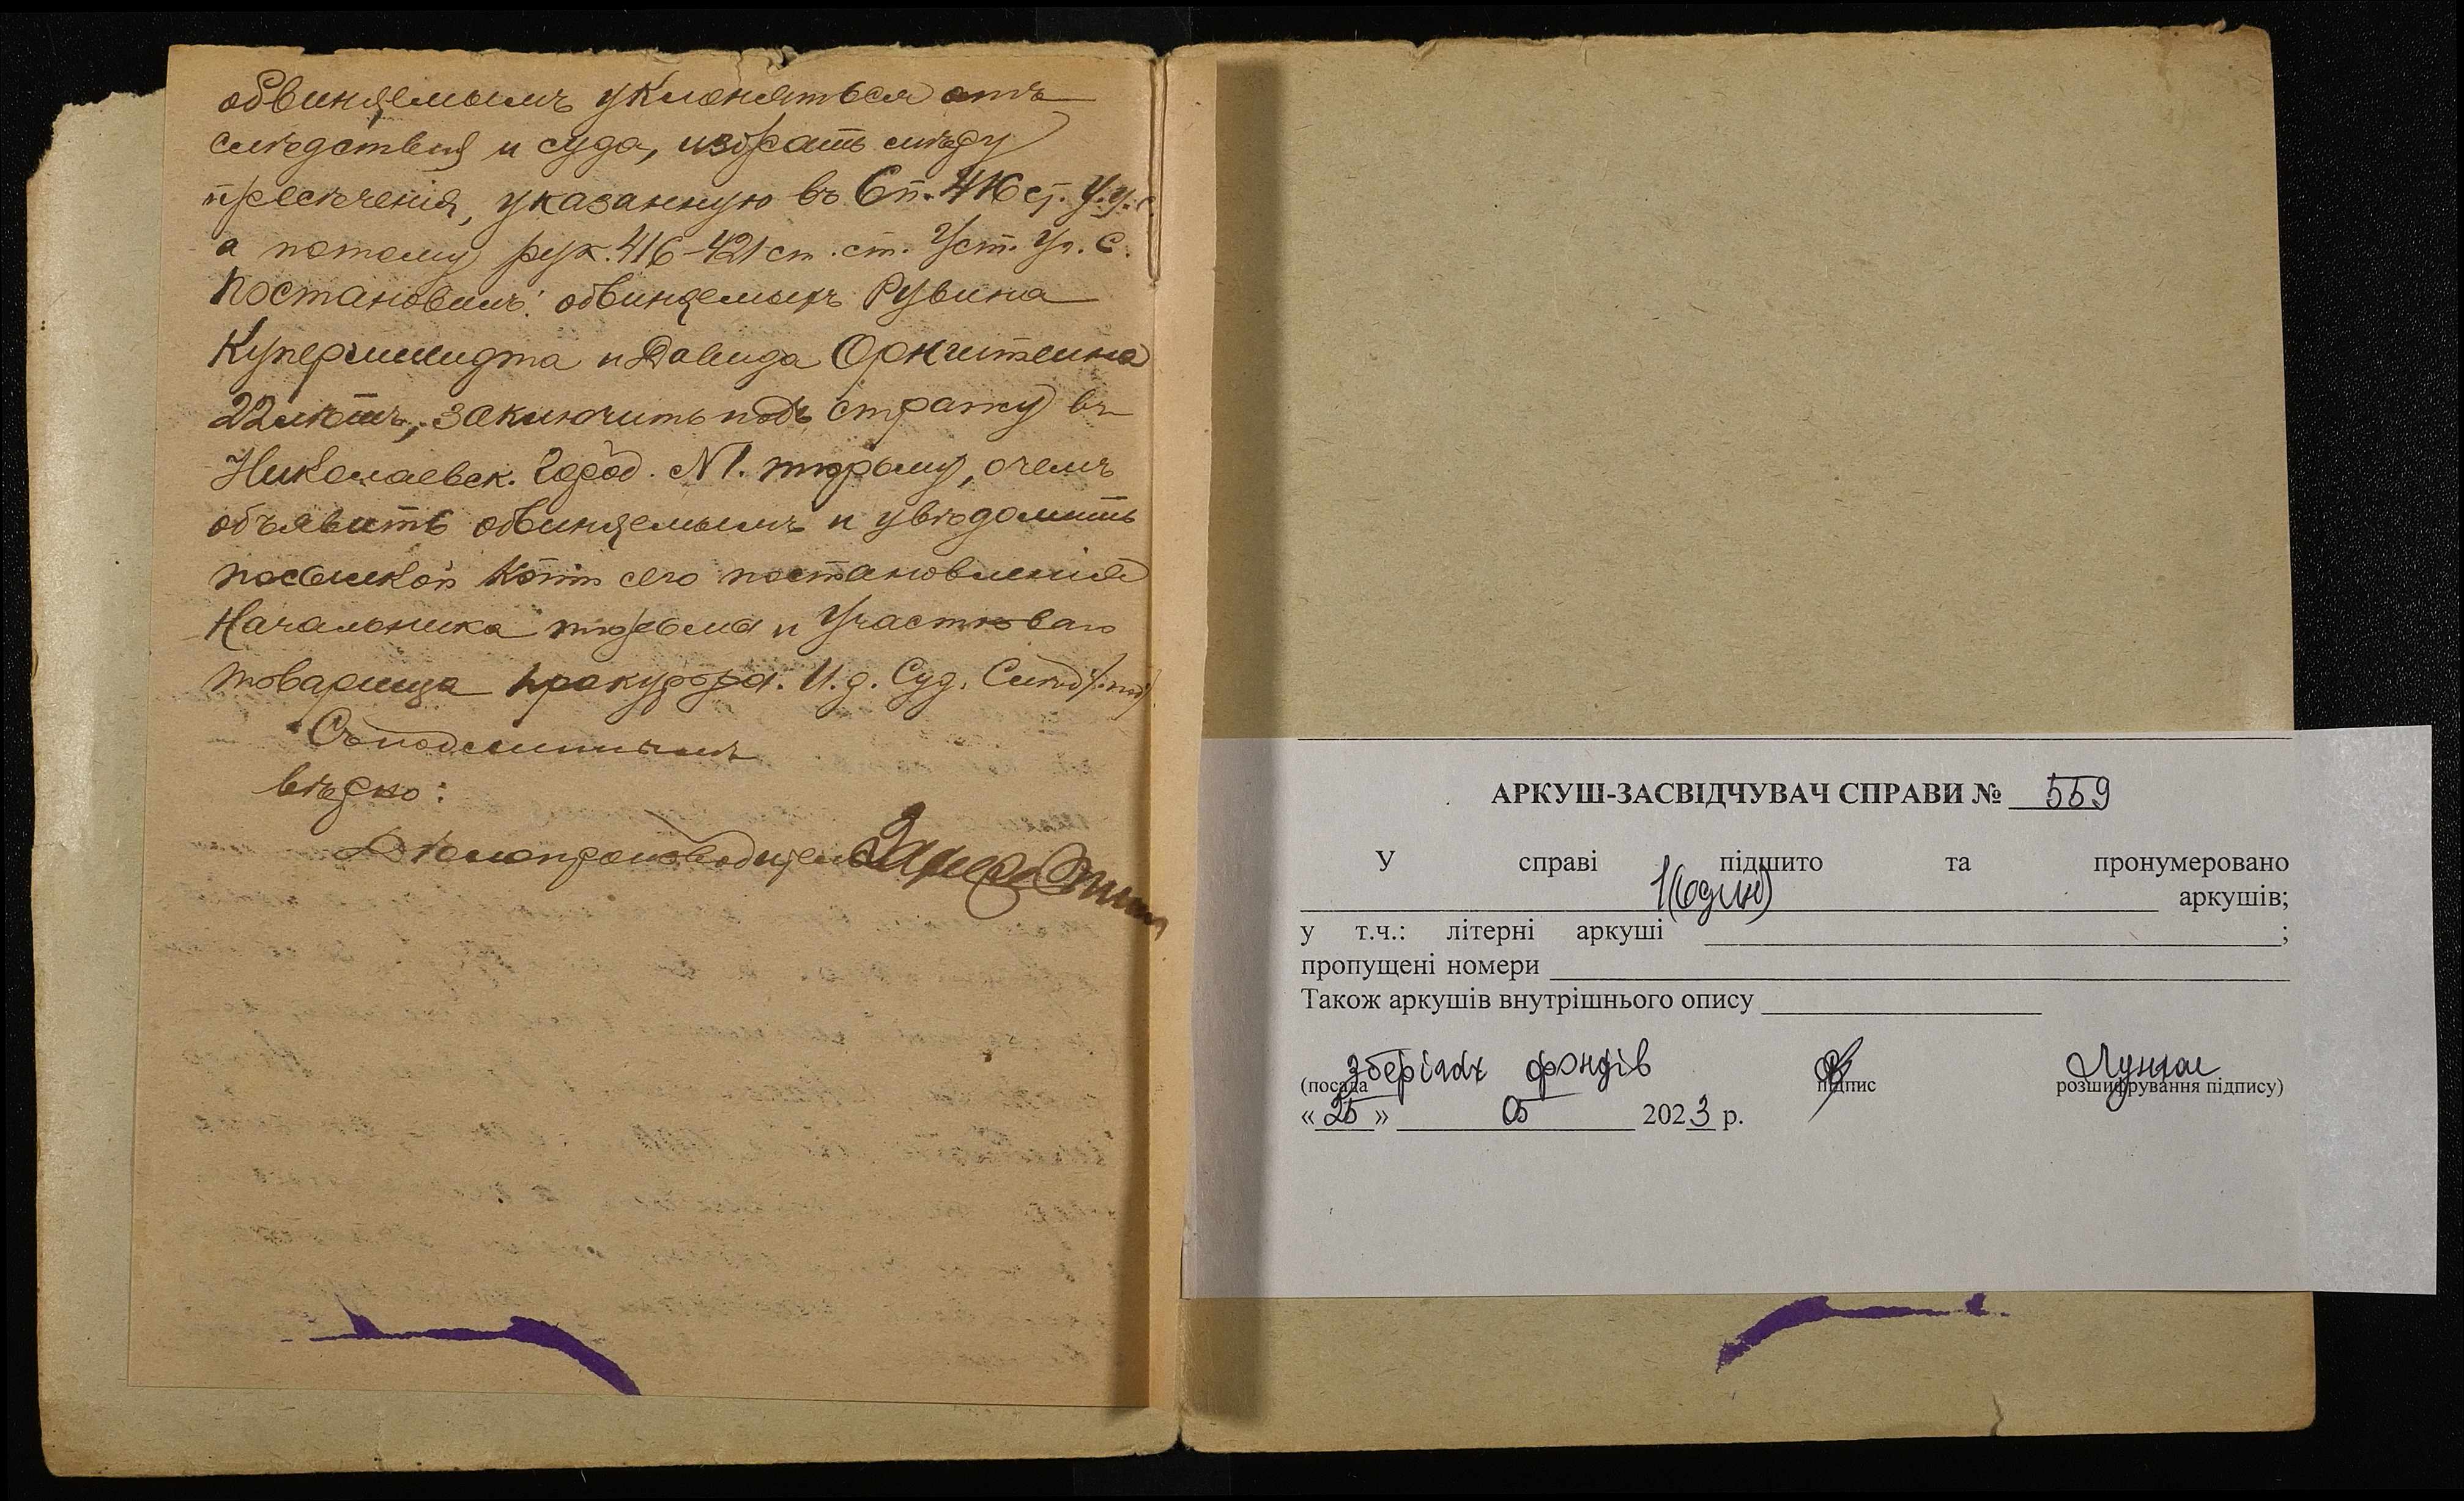 обвиняемымъ уклоняться отъ
слѣдствія и суда, избрать мѣру
пресѣченія, указанную въ 6 п. 416 ст. У.У.С.
а потому рук. 416-421 ст. ст. Уст. Уг. С.
Постановилъ: обвиняемыхъ Рувина
Купершмидта и Давида Оркштейна
22 лѣтъ, заключить подъ стражу въ
Николаевск. Город. №1. тюрьму, о чемъ
объявить обвиняемымъ и увѣдомить
посылкой копіи сего постановленія
Начальника тюрьмы и Участковаго
товарища прокурора. И.д. Суд. Слѣд.
Съ подлиннымъ
вѣрно:
Дѣлопроизводитель
АРКУШ-ЗАСВІДЧУВАЧ СПРАВИ № 559
У справі підшито та пронумеровано
1(один) аркушів;
у т.ч.: літерні аркуші ;
пропущені номери
Також аркушів внутрішнього опису
зберігач фондів
(посада підпис розшифрування підпису)
«25» 05 2023 р.